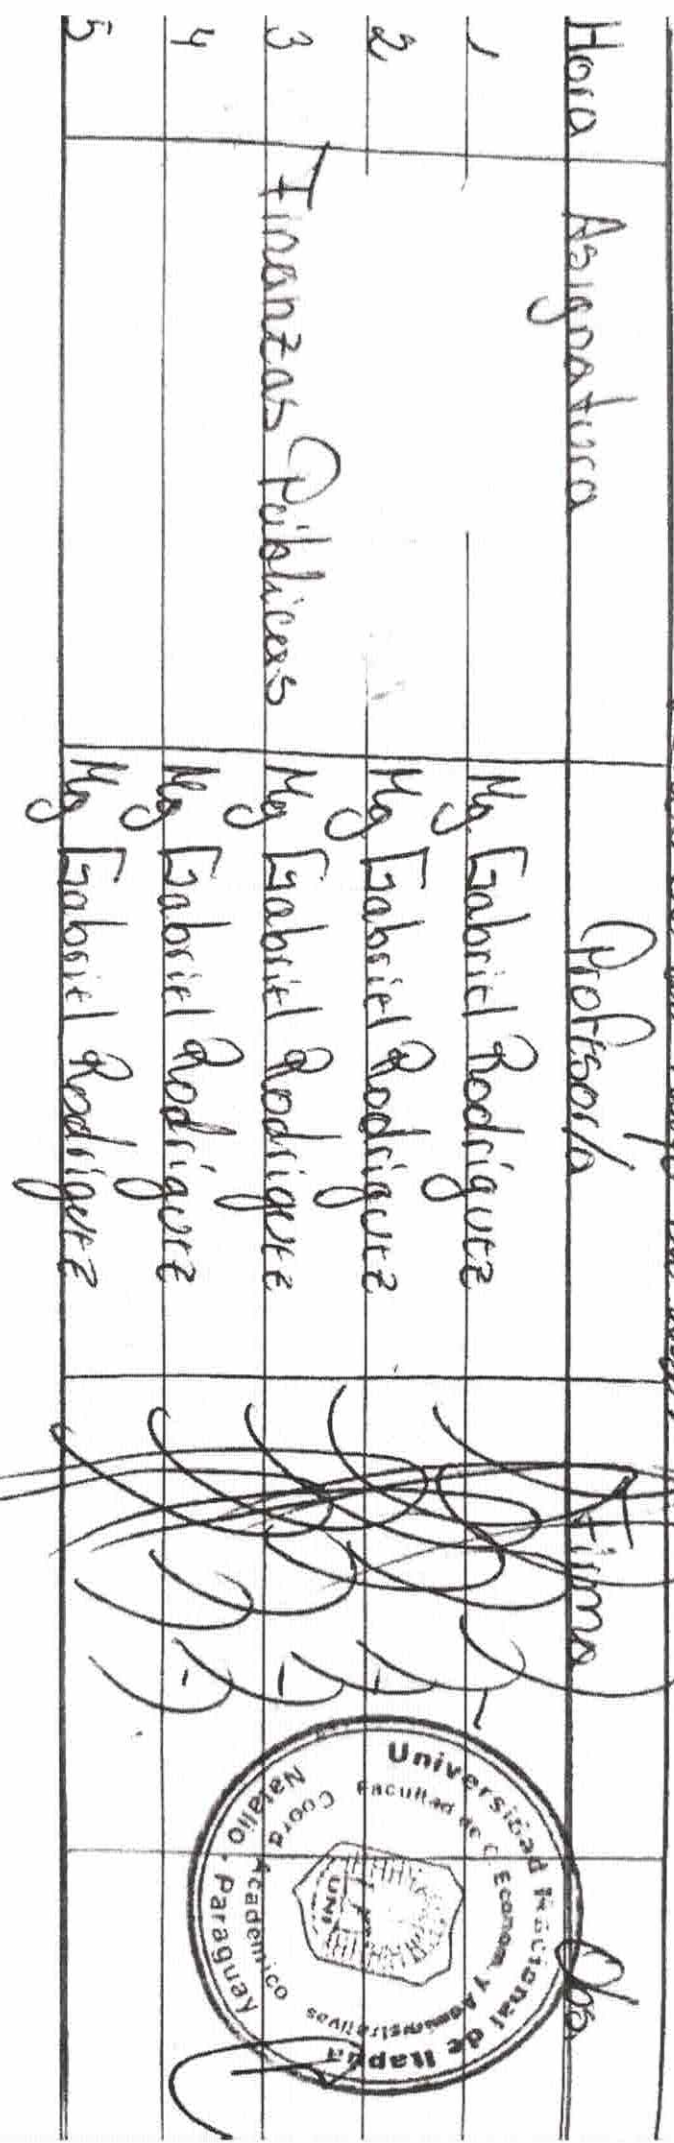 Hora Asignatura Profesor/a Firma Obs
1 Mg Gabriel Rodríguez
2 Mg Gabriel Rodríguez
3 Finanzas Públicas Mg Gabriel Rodríguez
4 Mg Gabriel Rodríguez
5 Mg Gabriel Rodríguez
Universidad Nacional de Itapúa
Facultad de C. Econom. y Administrativas
UNI
Coord Académico
Natalio - Paraguay